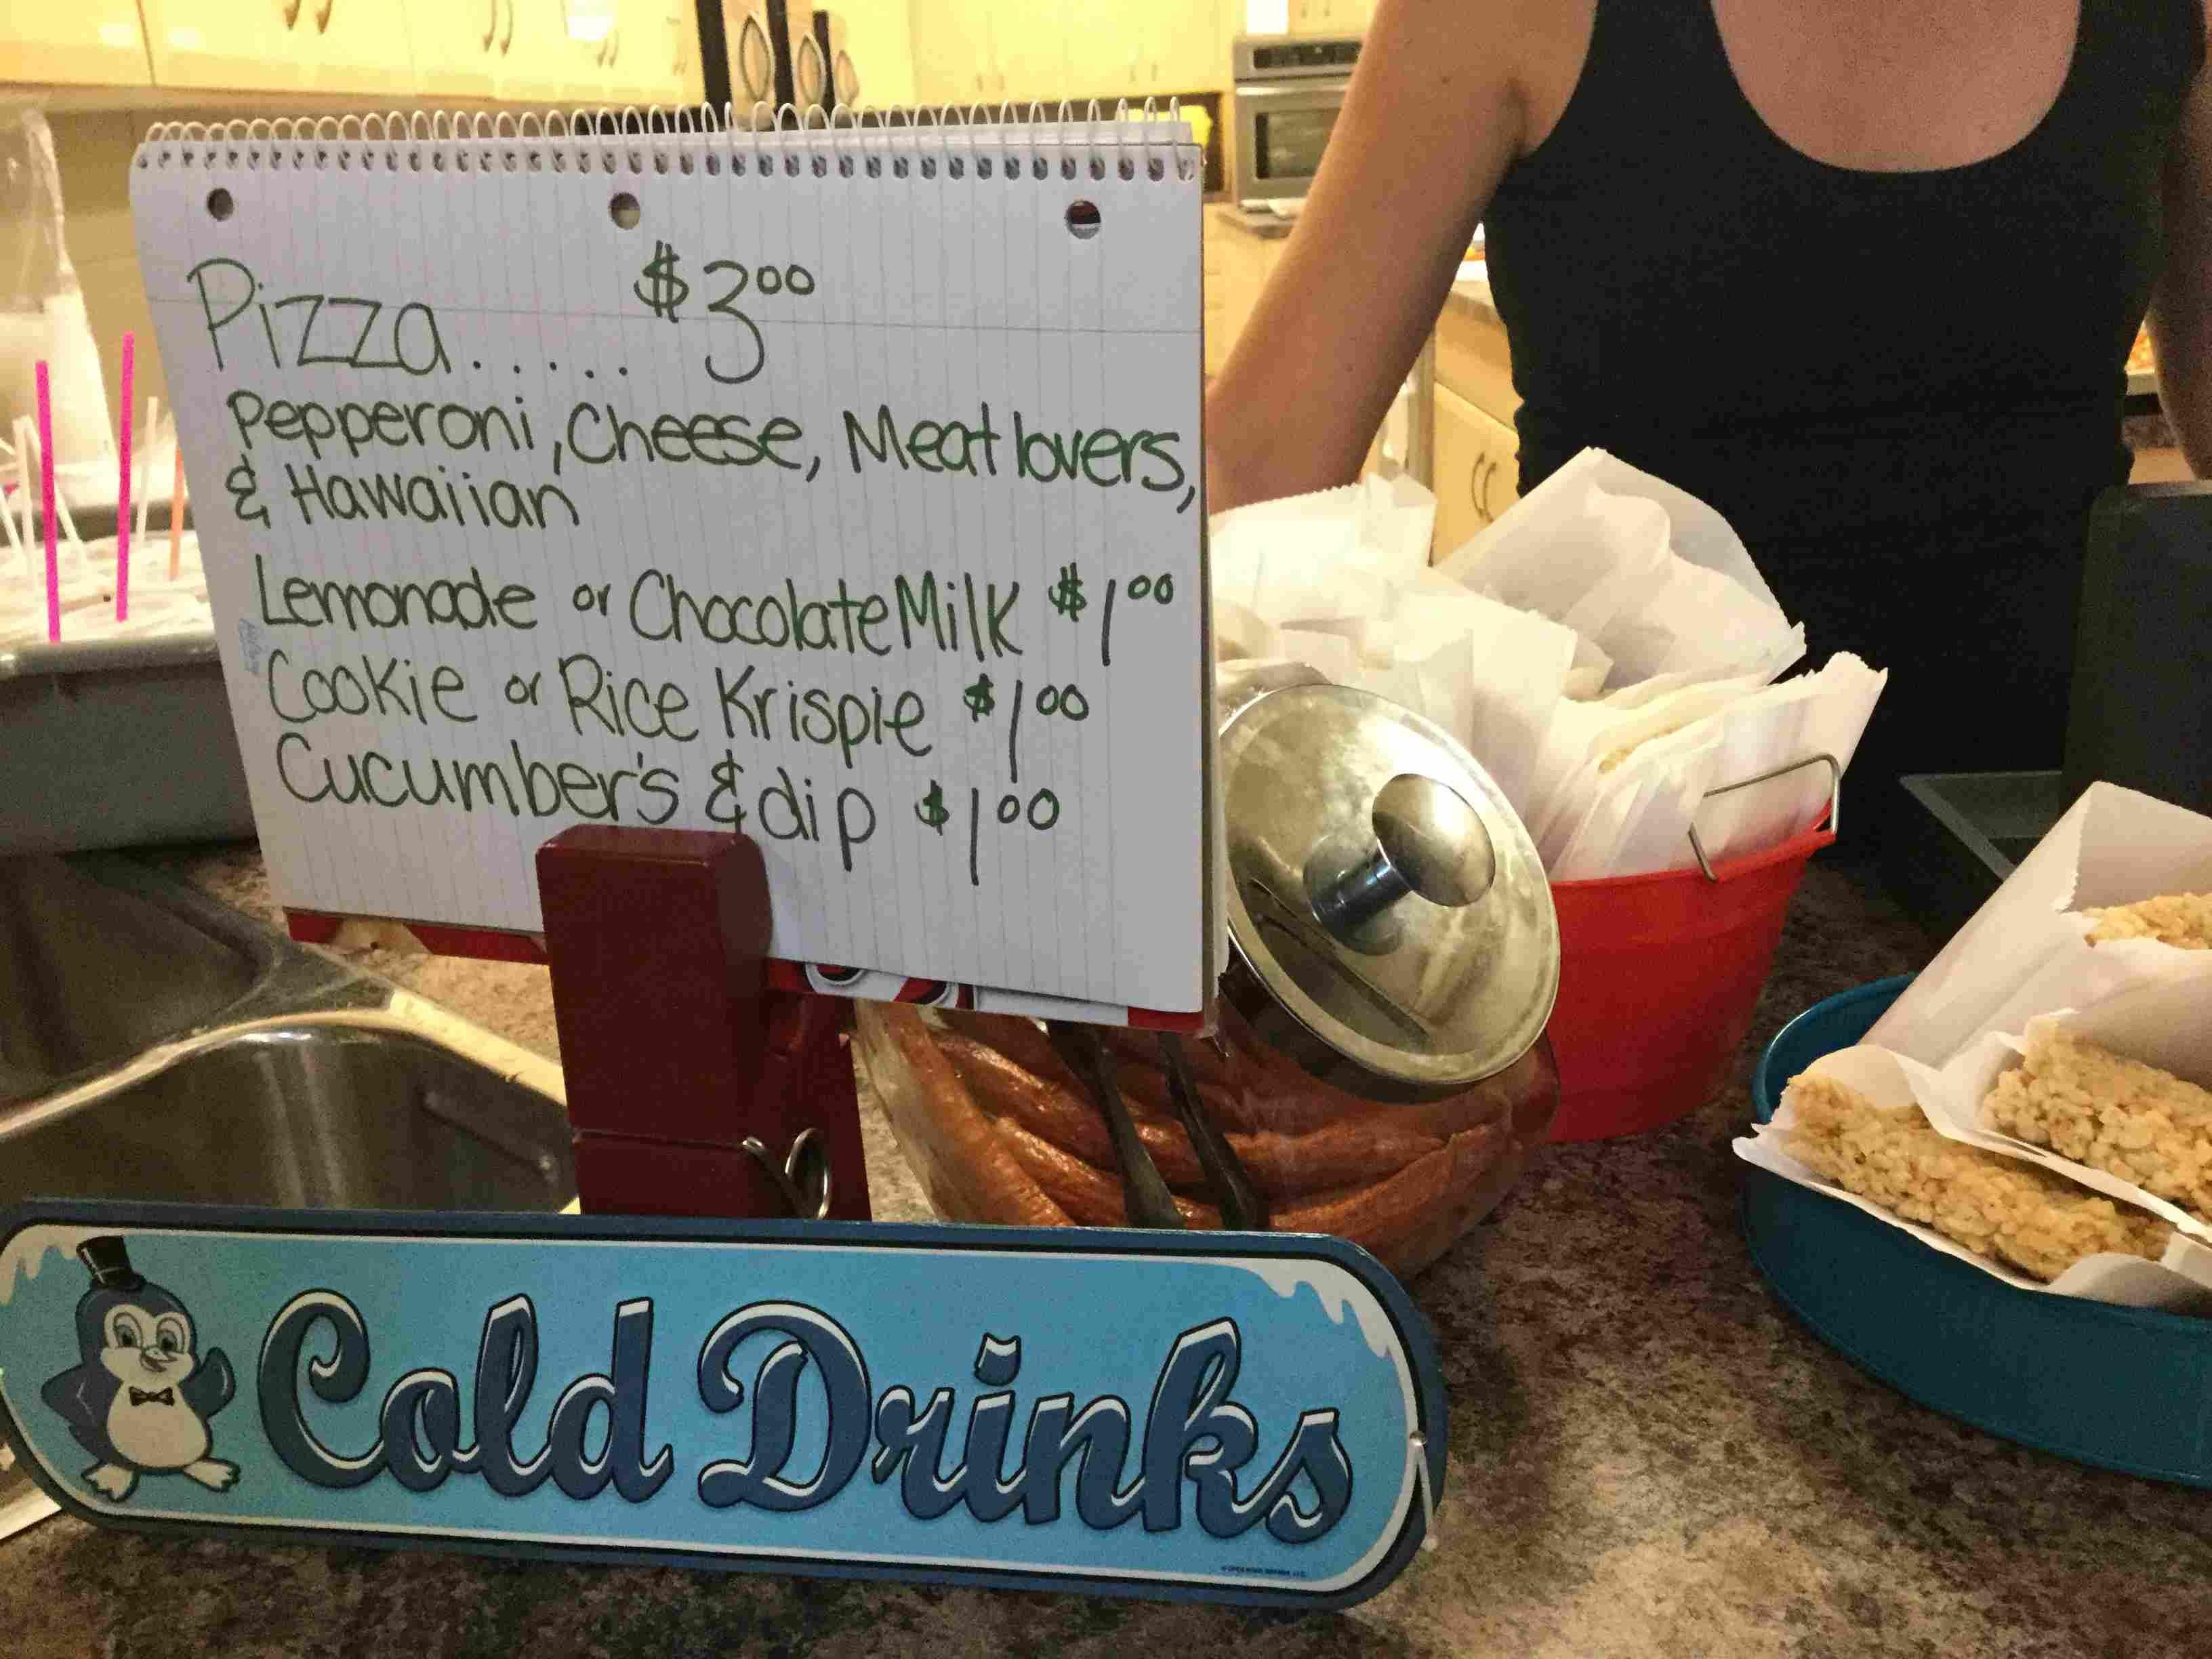 Pizza..... $3⁰⁰
Pepperoni, Cheese, Meat lovers,
& Hawaiian
Lemonade or Chocolate Milk $1⁰⁰
Cookie or Rice Krispie $1⁰⁰
Cucumber's & dip $1⁰⁰
Cold Drinks